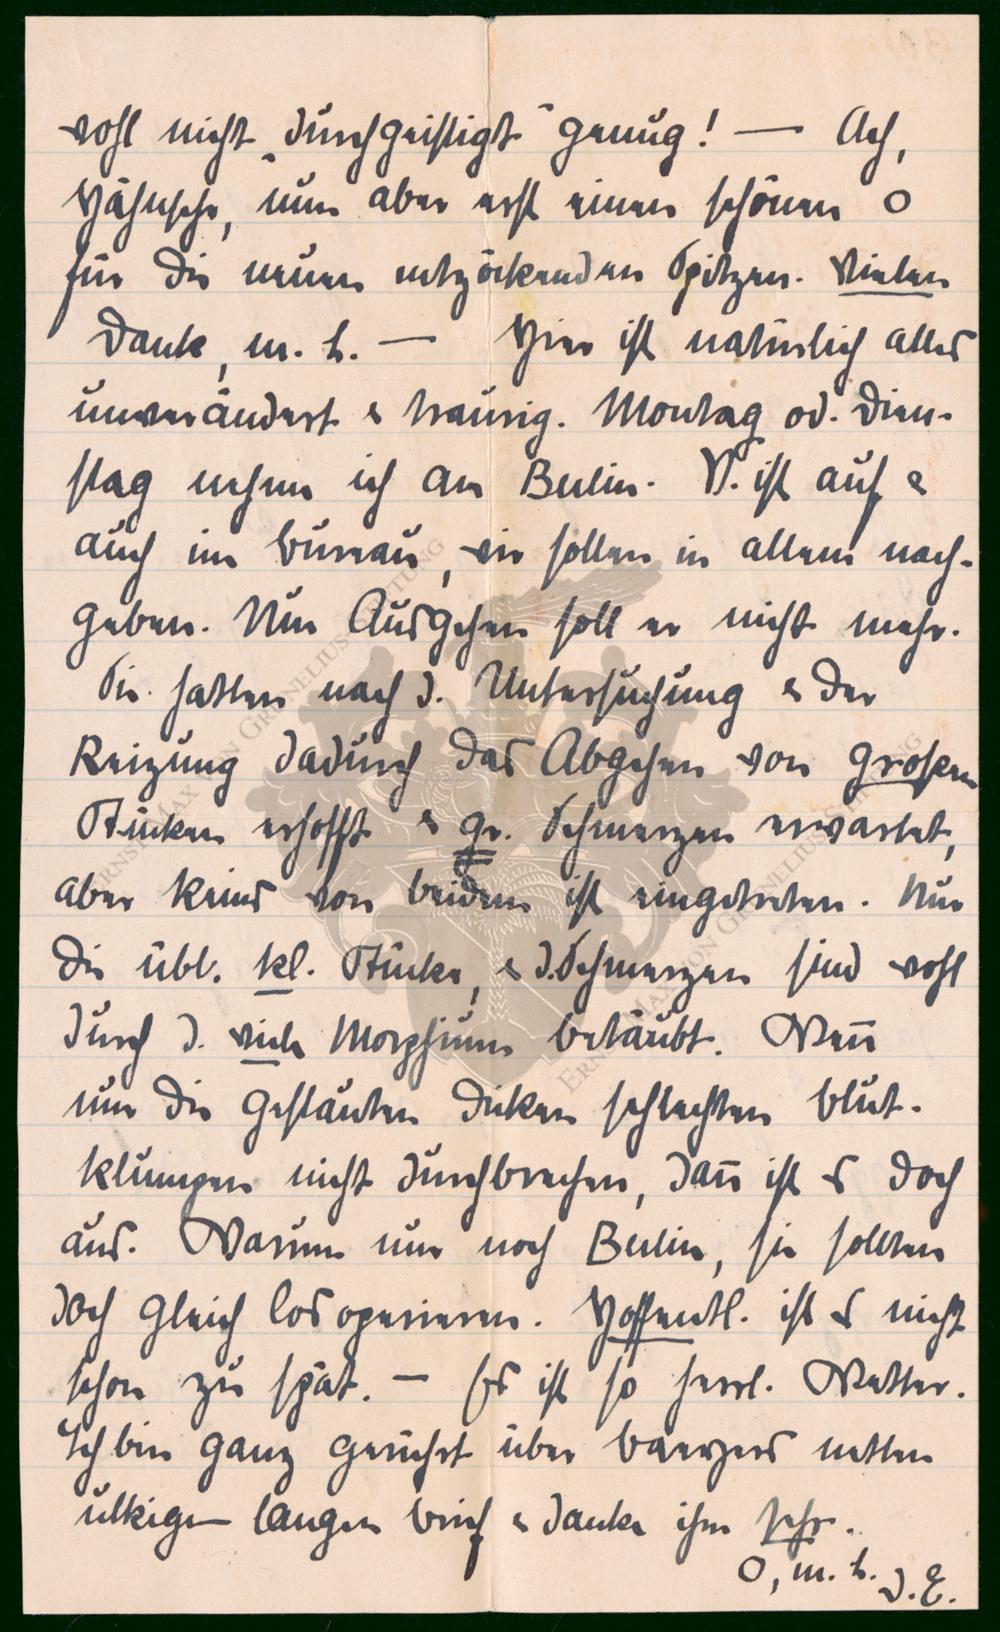 wohl nicht „durchgeistigt" genug! — Ach,
Hähnsche, nun aber erst einen schönen O
für die neuen entzückenden Spitzen. Vielen
Dank, m. L. — Hier ist natürlich alles
unverändert & traurig. Montag od. Dien-
stag nehme ich an Berlin. V. ist auf &
auch im Bureau, wir sollen in allem nach-
geben. Nur Ausgehen soll er nicht mehr.
Sie hatten nach d. Untersuchung & der
Reizung dadurch das Abgehen von großen
Stücken erhofft & gr. Schmerzen erwartet,
aber keins von beiden ist eingetreten. Nur
die übl. kl. Stücke, & d. Schmerzen sind wohl
durch d. viele Morphium betäubt. Wenn̄
nun die gestauten dicken schlechten Blut-
klumpen nicht durchbrechen, dan̄ ist es doch
aus. Warum nur noch Berlin, sie sollten
doch gleich losoperieren. Hoffentl. ist es nicht
schon zu spät. — Es ist so herrl. Wetter.
Ich bin ganz gerührt über netten
ulkigen langen Brief & danke ihm sehr.
O, m. L. D. E.
ERNST MAX VON GRUNELIUS-STIFTUNG
ERNST MAX VON GRUNELIUS-STIFTUNG